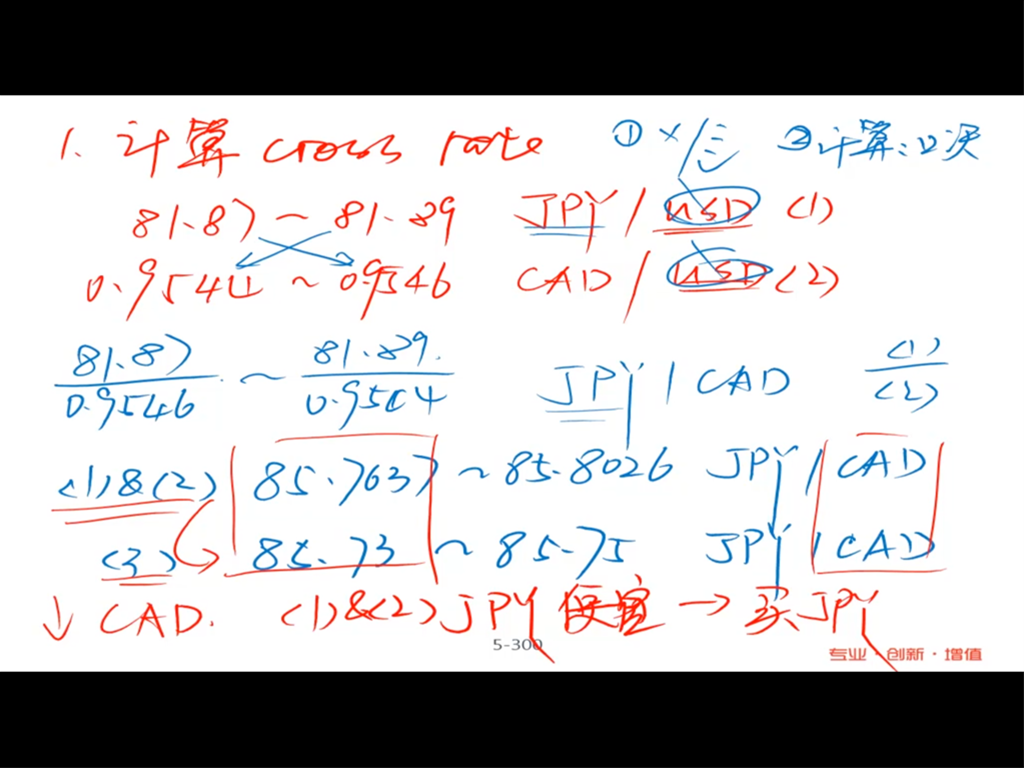 1. 计算 cross rate ① ×/÷ ②计算:2次
81.87 ~ 81.89 JPY / USD (1)
0.9544 ~ 0.9546 CAD / USD (2)
81.87 ~ 81.89 (1)
0.9546 0.9544 JPY / CAD (2)
(1)&(2) 85.7637 ~ 85.8026 JPY / CAD
(3) 85.73 ~ 85.75 JPY / CAD
↓ CAD. (1)&(2) JPY 便宜 → 买JPY
5-300
专业·创新·增值